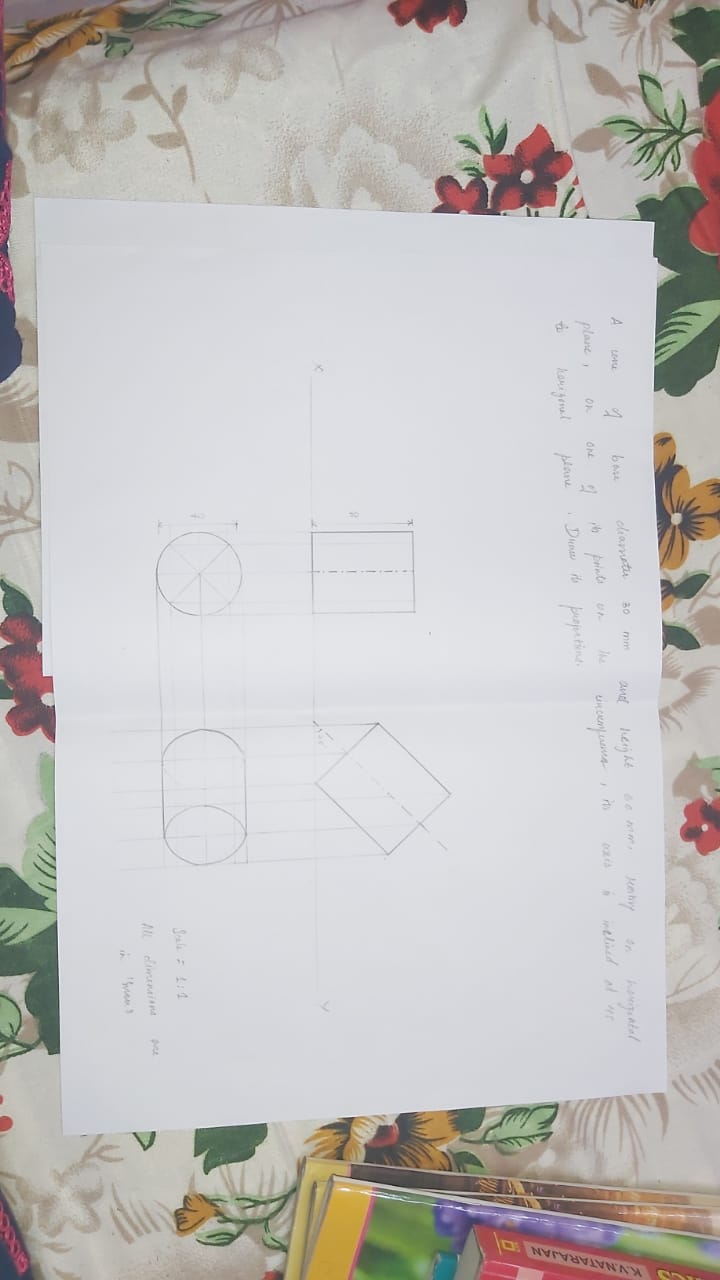 A cone of base diameter 30 mm and height 60 mm, on horizontal
plane, on one of its points on the , its axis is inclined at 45
to plane. Draw its projections.
X
Y
45
Scale = 1:1
All dimensions are
in "mm"
K.V.NATARAJAN